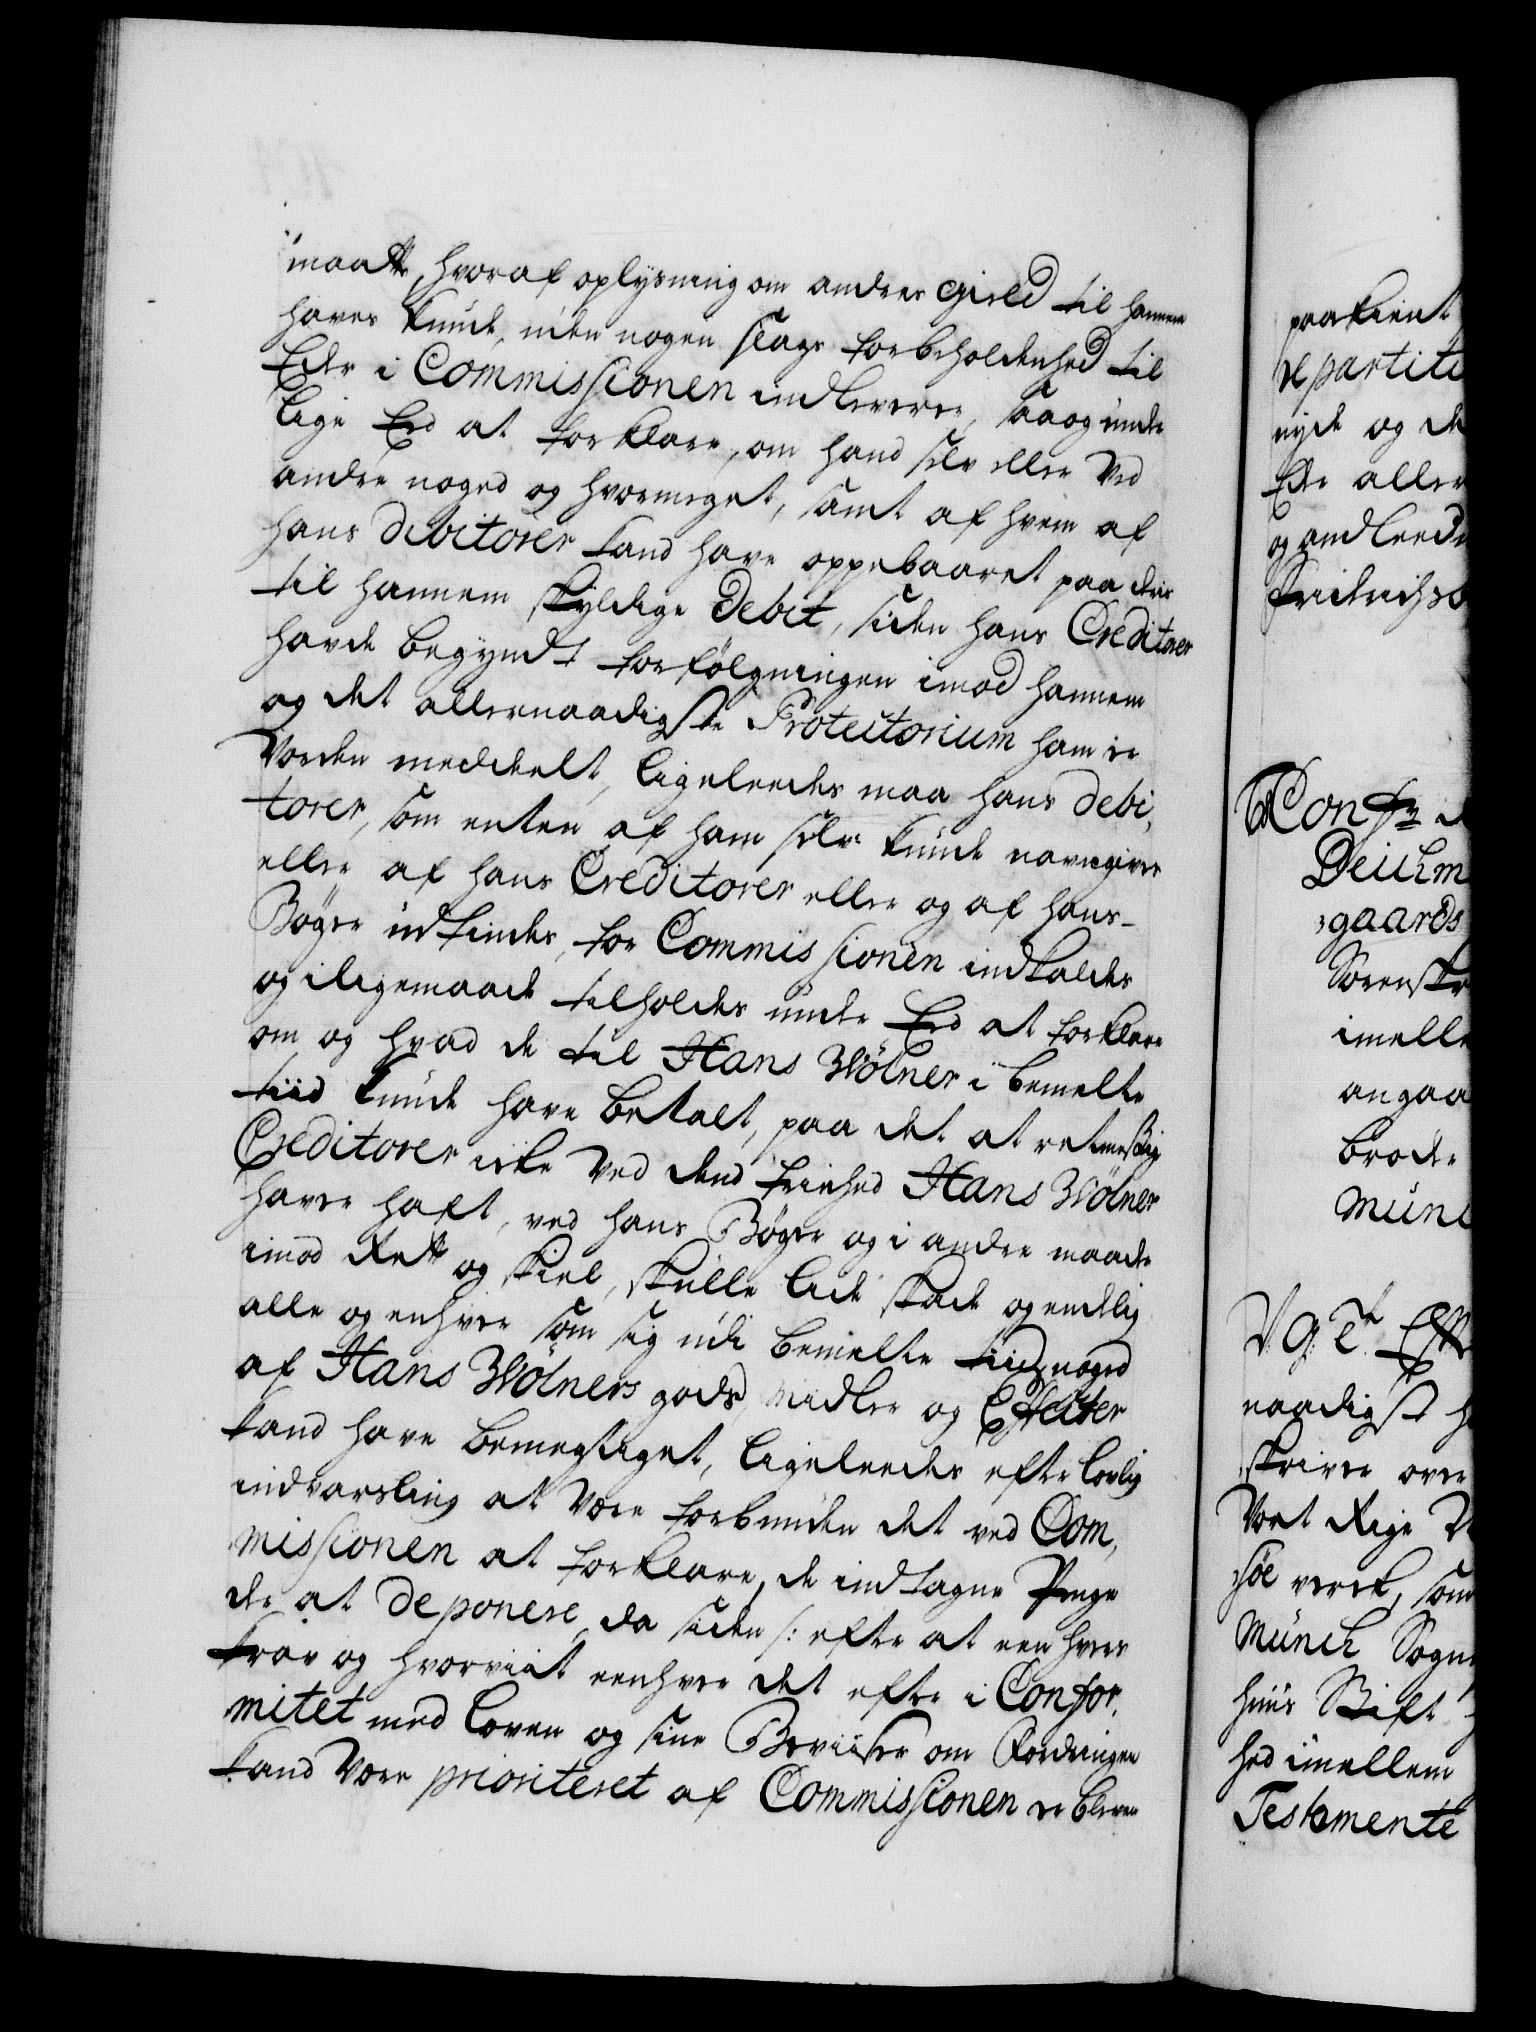 maatte, hvoraf oplysning om andres Gield til hannem
haves kunde, uden nogen slags forbeholdenhed til
Eder i Commissionen indleverer, saa og under
lige Eed at forklare, om hand selv eller ved
andre noged og hvormeget, samt af hvem af
hans Debitorer kand have oppebaaret paa deris
til hannem skyldige Debet, siden hans Creditorer
havde begyndt forfølgningen imod hannem
og det allernaadigste Protectorium ham er
vorden meddeelt, ligeleedes maa hans Debi,
torer, som enten af ham selv kunde navngives
eller af hans Creditorer eller og af hans
Bøger udfindes, for Commissionen indkaldes
og i ligemaade tilholdes under Eed at forklare
om og hvad de til Hans Wölner i bemelte
tiid kunde have betalt, paa det at retmessig
Creditorer icke ved dend friehed Hans Wölner
haver haft, ved hans Bøger og i andre maade
imod Rett og skiel, skulle lide skade og endelig
alle og enhver som sig udi bemelte tiid noged
af Hans Wölners gods, midler og Effecter
kand have bemegtiget, ligeleedes efter lovlig
indvarsling at være forbunden det ved Com,
missionen at forklare, de indtagne Penge
der at deponere, da siden /: efter at een hvers
krav og hvorviit eenhver det efter i Confor,
mitet med loven og sine Beviiser om Fordringen
kand være prioriteret af Commissionen er bleven
paakient
repartiti
nyde og de
Eder aller
og andleed
Friderichsb
Conf:
Deichm
gaards
Sorenskr
imelle
angaa
brode
Munc
V. G. T.
naadigst h
skriver over
Vort Rige N
søe verck, som
Münch Sogne
huus Stift
hed imellem
Testamente